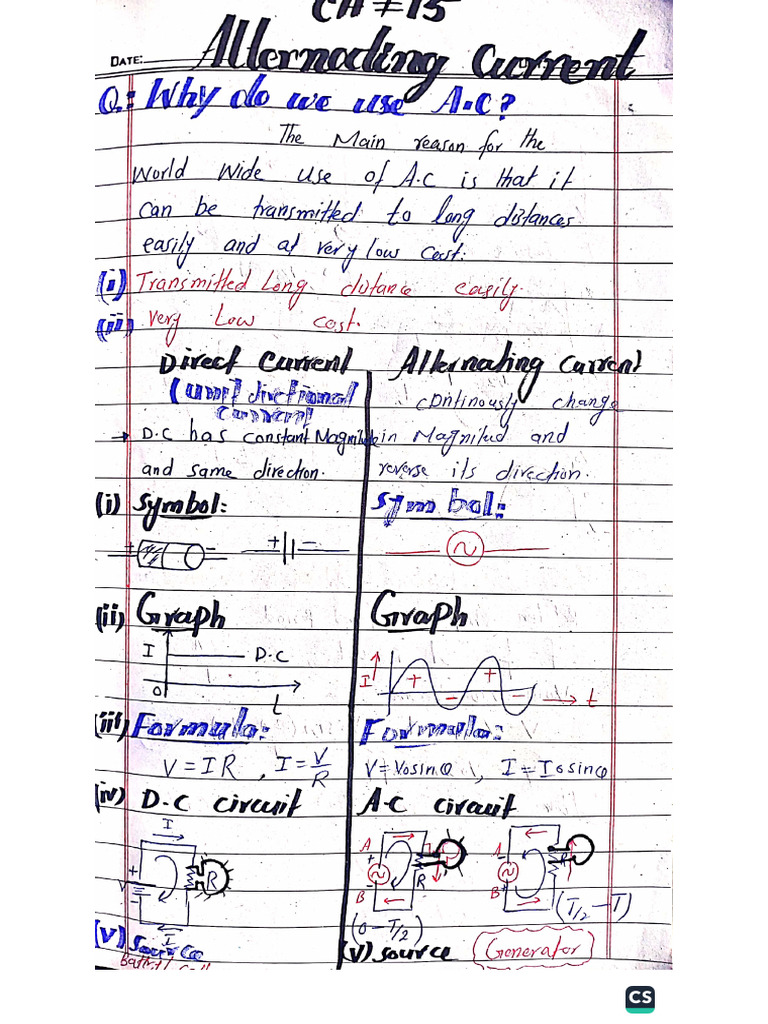 CH # 15
DATE:
Alternading Current
Q.: Why do we use A.C?
The Main reason for the
world wide use of A.C is that it
can be transmitted to long distances
easily and at very low cost.
(i) Transmitted Long distance easily.
(ii) very Low cost.
Direct Current
(uni dirctional
Current)
→ D.C has constant Magnitude
and same direction.
Alternating Current
continously change
in Magnitud and
reverse its direction.
(i) Symbol:
Symbol:
+ - + -
(ii) Graph
Graph
I D.C
O t
I + - + - t
(iii) Formula:
Formula:
V = IR , I = V/R
V = Vosinθ , I = Iosinθ
(iv) D.C circuit
A.C circuit
I
+ V - R
I
A + B - R
(0 - T/2)
A - B + R
(T/2 - T)
(v) Source
(v) source Generator
CS